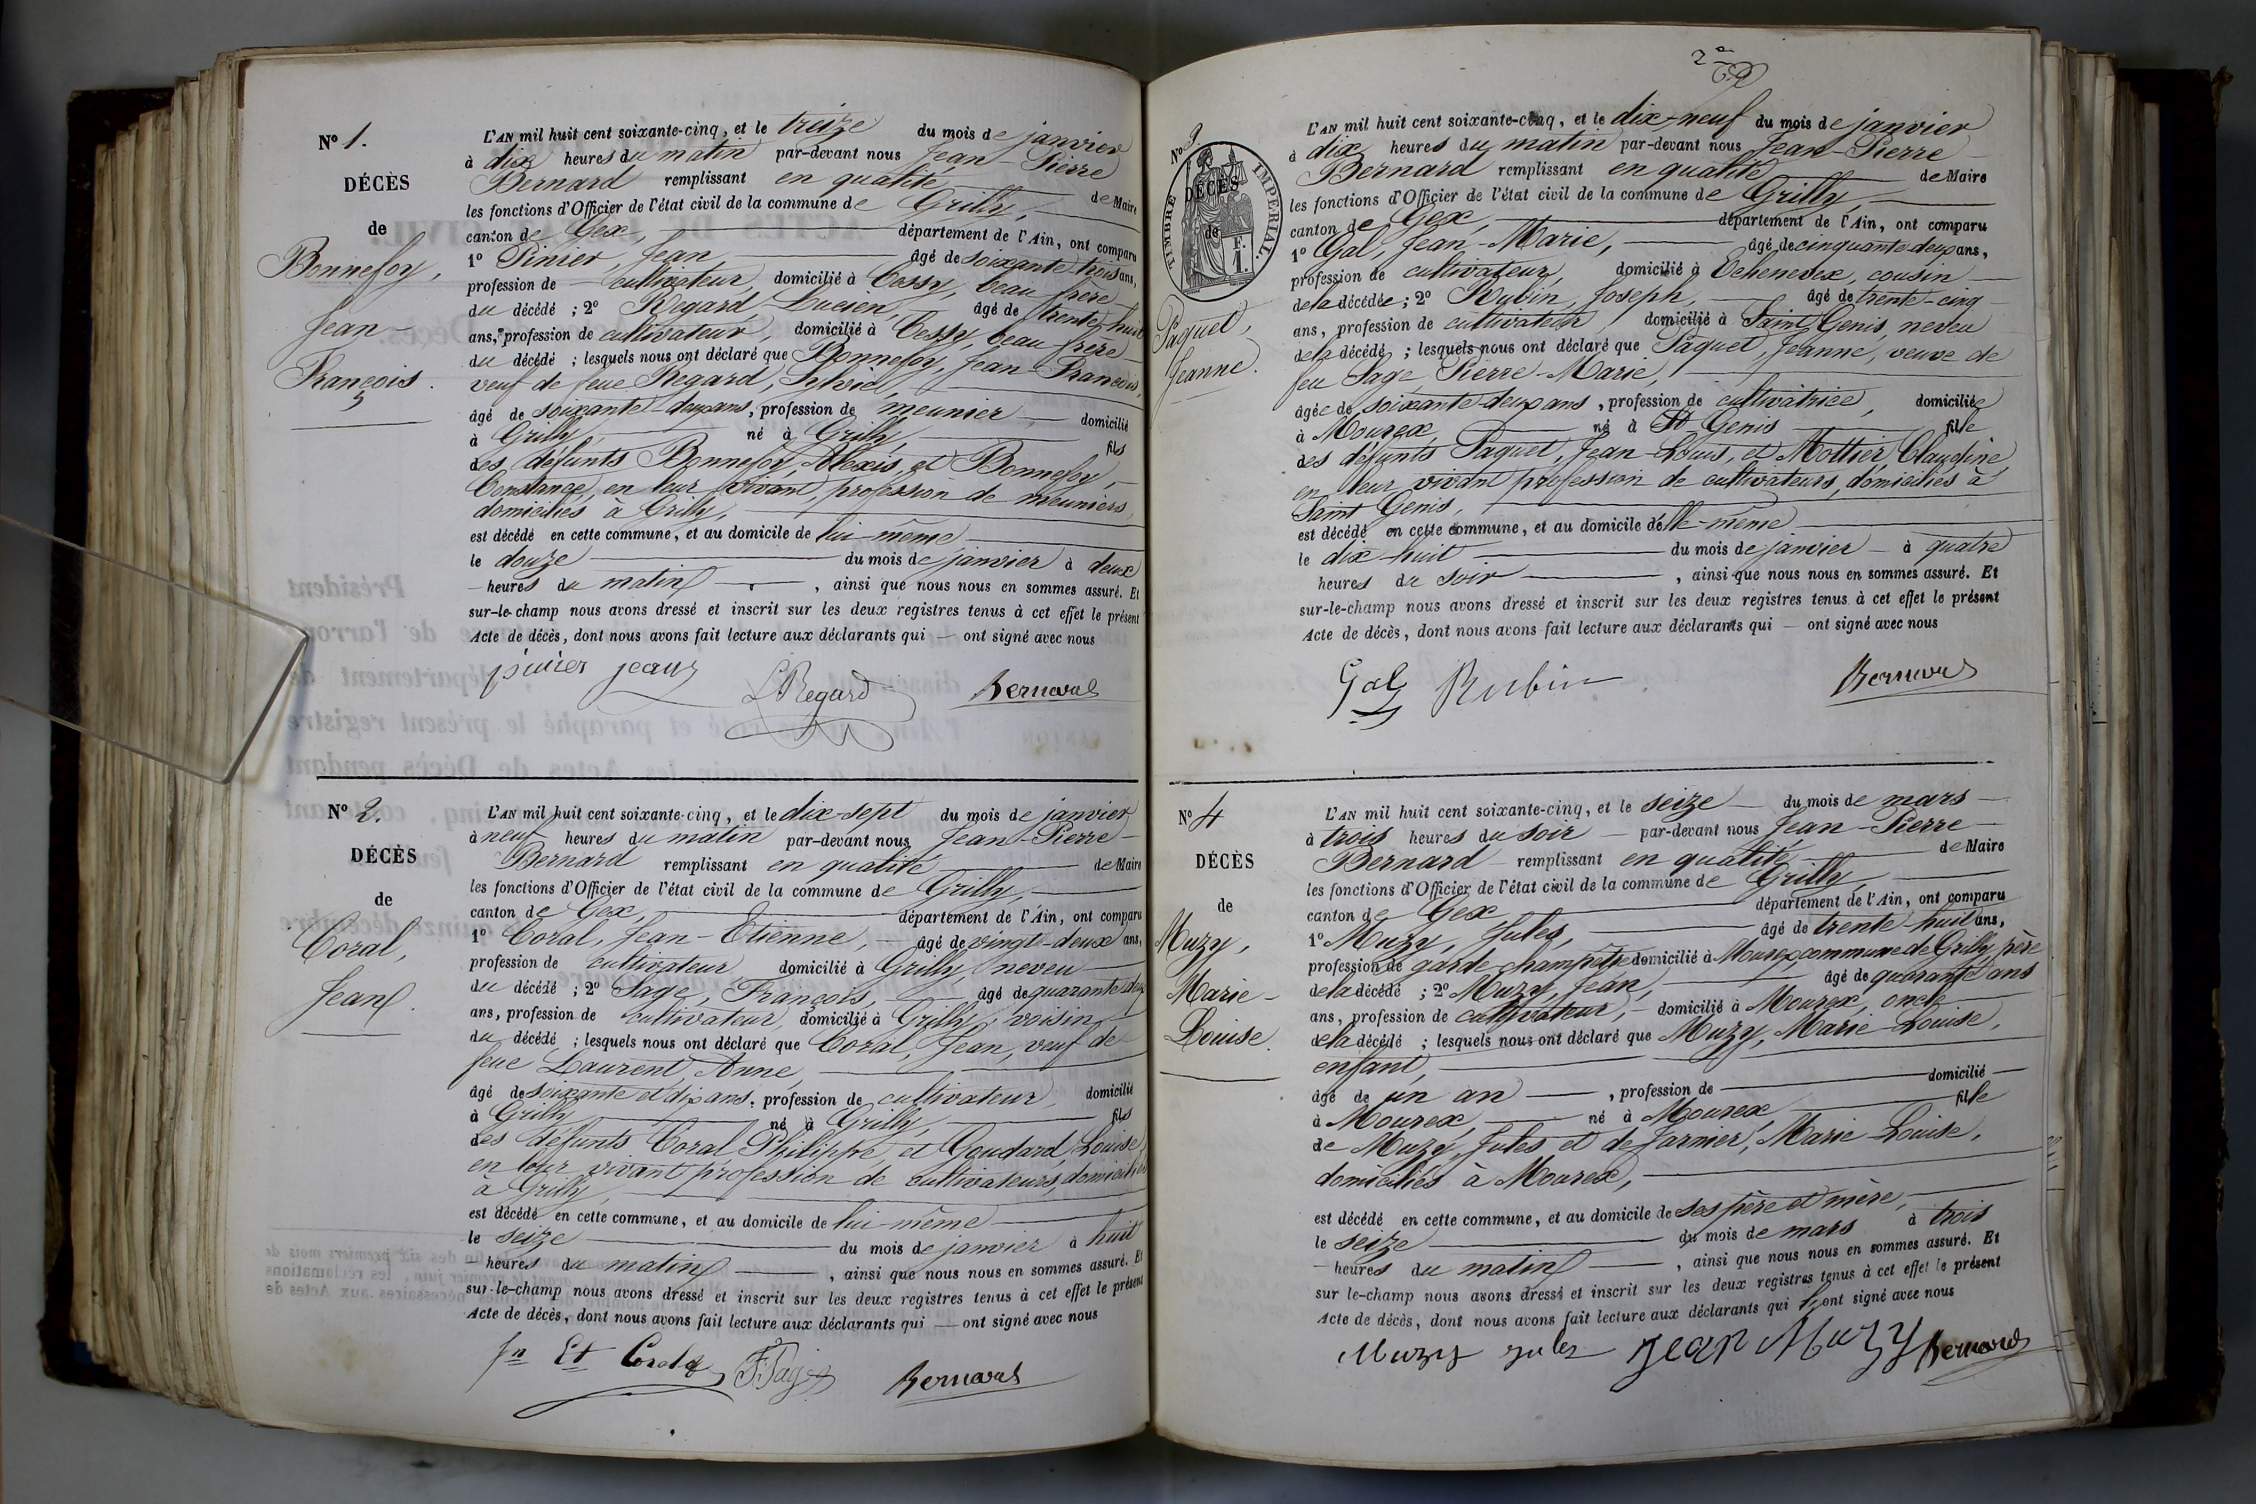 N° 1.
DÉCÈS
de
Bonnefoy,
Jean-
François.
L'AN mil huit cent soixante-cinq, et le treize du mois de janvier
à dix heures du matin par-devant nous Jean-Pierre
Bernard remplissant en qualité de Maire
les fonctions d'Officier de l'état civil de la commune de Grilly,
canton de Gex, département de l'Ain, ont comparu
1° Pinier, Jean, âgé de soixante trois ans,
profession de cultivateur, domicilié à Cessy, beau frère
du décédé ; 2° Regard, Lucien, âgé de trente huit
ans, profession de cultivateur, domicilié à Cessy, beau frère
du décédé ; lesquels nous ont déclaré que Bonnefoy, Jean-François,
veuf de feue Regard, Sylvie,
âgé de soixante-deux ans, profession de meunier domicilié
à Grilly, né à Grilly, fils
des défunts Bonnefoy, Alexis, et Bonnefoy,
Constance, en leur vivant, profession de meuniers,
domiciliés à Grilly,
est décédé en cette commune, et au domicile de lui-même
le douze du mois de janvier à deux
heures du matin, ainsi que nous nous en sommes assuré. Et
sur-le-champ nous avons dressé et inscrit sur les deux registres tenus à cet effet le présent
Acte de décès, dont nous avons fait lecture aux déclarants qui ont signé avec nous
pinier jean L Regard Bernard
N° 2.
DÉCÈS
de
Coral,
Jean.
L'AN mil huit cent soixante-cinq, et le dix-sept du mois de janvier
à neuf heures du matin par-devant nous Jean-Pierre
Bernard remplissant en qualité de Maire
les fonctions d'Officier de l'état civil de la commune de Grilly,
canton de Gex, département de l'Ain, ont comparu
1° Coral, Jean-Etienne, âgé de vingt-deux ans,
profession de cultivateur domicilié à Grilly, neveu
du décédé ; 2° Sage, François, âgé de quarante
ans, profession de cultivateur, domicilié à Grilly, voisin
du décédé ; lesquels nous ont déclaré que Coral, Jean, veuf de
feue Laurent, Anne,
âgé de soixante et dix ans, profession de cultivateur, domicilié
à Grilly né à Grilly, fils
des défunts Coral, Philippe et Goudard, Louise,
en leur vivant profession de cultivateurs, domiciliés
à Grilly,
est décédé en cette commune, et au domicile de lui-même
le seize du mois de janvier à huit
heures du matin, ainsi que nous nous en sommes assuré. Et
sur-le-champ nous avons dressé et inscrit sur les deux registres tenus à cet effet le présent
Acte de décès, dont nous avons fait lecture aux déclarants qui ont signé avec nous
Jn Et Coral F Sage Bernard
2e
N° 3.
TIMBRE IMPÉRIAL.
1 F.
DÉCÈS
de
Paquet,
Jeanne.
L'AN mil huit cent soixante-cinq, et le dix-neuf du mois de janvier
à dix heures du matin par-devant nous Jean-Pierre
Bernard remplissant en qualité de Maire
les fonctions d'Officier de l'état civil de la commune de Grilly,
canton de Gex, département de l'Ain, ont comparu
1° Gal, Jean-Marie, âgé de cinquante-deux ans,
profession de cultivateur, domicilié à Echenevex, cousin
de la décédée ; 2° Rubin, Joseph, âgé de trente-cinq
ans, profession de cultivateur, domicilié à Saint Genis, neveu
de la décédé ; lesquels nous ont déclaré que Paquet, Jeanne, veuve de
feu Sage, Pierre-Marie,
âgée de soixante-deux ans, profession de cultivatrice, domiciliée
à Mourex, né à St Genis fille
des défunts Paquet, Jean-Louis, et Mottier Claudine,
en leur vivant profession de cultivateurs, domiciliés à
Saint Genis,
est décédé en cette commune, et au domicile d'elle-même
le dix-huit du mois de janvier à quatre
heures du soir, ainsi que nous nous en sommes assuré. Et
sur-le-champ nous avons dressé et inscrit sur les deux registres tenus à cet effet le présent
Acte de décès, dont nous avons fait lecture aux déclarants qui ont signé avec nous
Gal Rubin Bernard
N° 4
DÉCÈS
de
Muzy,
Marie-
Louise.
L'AN mil huit cent soixante-cinq, et le seize du mois de mars
à trois heures du soir par-devant nous Jean-Pierre
Bernard remplissant en qualité de Maire
les fonctions d'Officier de l'état civil de la commune de Grilly,
canton de Gex, département de l'Ain, ont comparu
1° Muzy, Jules, âgé de trente-huit ans,
profession de garde champêtre domicilié à Mourex, commune de Grilly, père
de la décédé ; 2° Muzy, Jean, âgé de quarante ans
ans, profession de cultivateur, domicilié à Mourex, oncle
de la décédé ; lesquels nous ont déclaré que Muzy, Marie-Louise,
enfant,
âgé de un an, profession de domicilié
à Mourex, né à Mourex, fille
de Muzy, Jules et de Jarnier, Marie-Louise,
domiciliés à Mourex,
est décédé en cette commune, et au domicile de ses père et mère,
le seize du mois de mars à trois
heures du matin, ainsi que nous nous en sommes assuré. Et
sur le-champ nous avons dressé et inscrit sur les deux registres tenus à cet effet le présent
Acte de décès, dont nous avons fait lecture aux déclarants qui l'ont signé avec nous
Muzy jules Jean Muzy Bernard